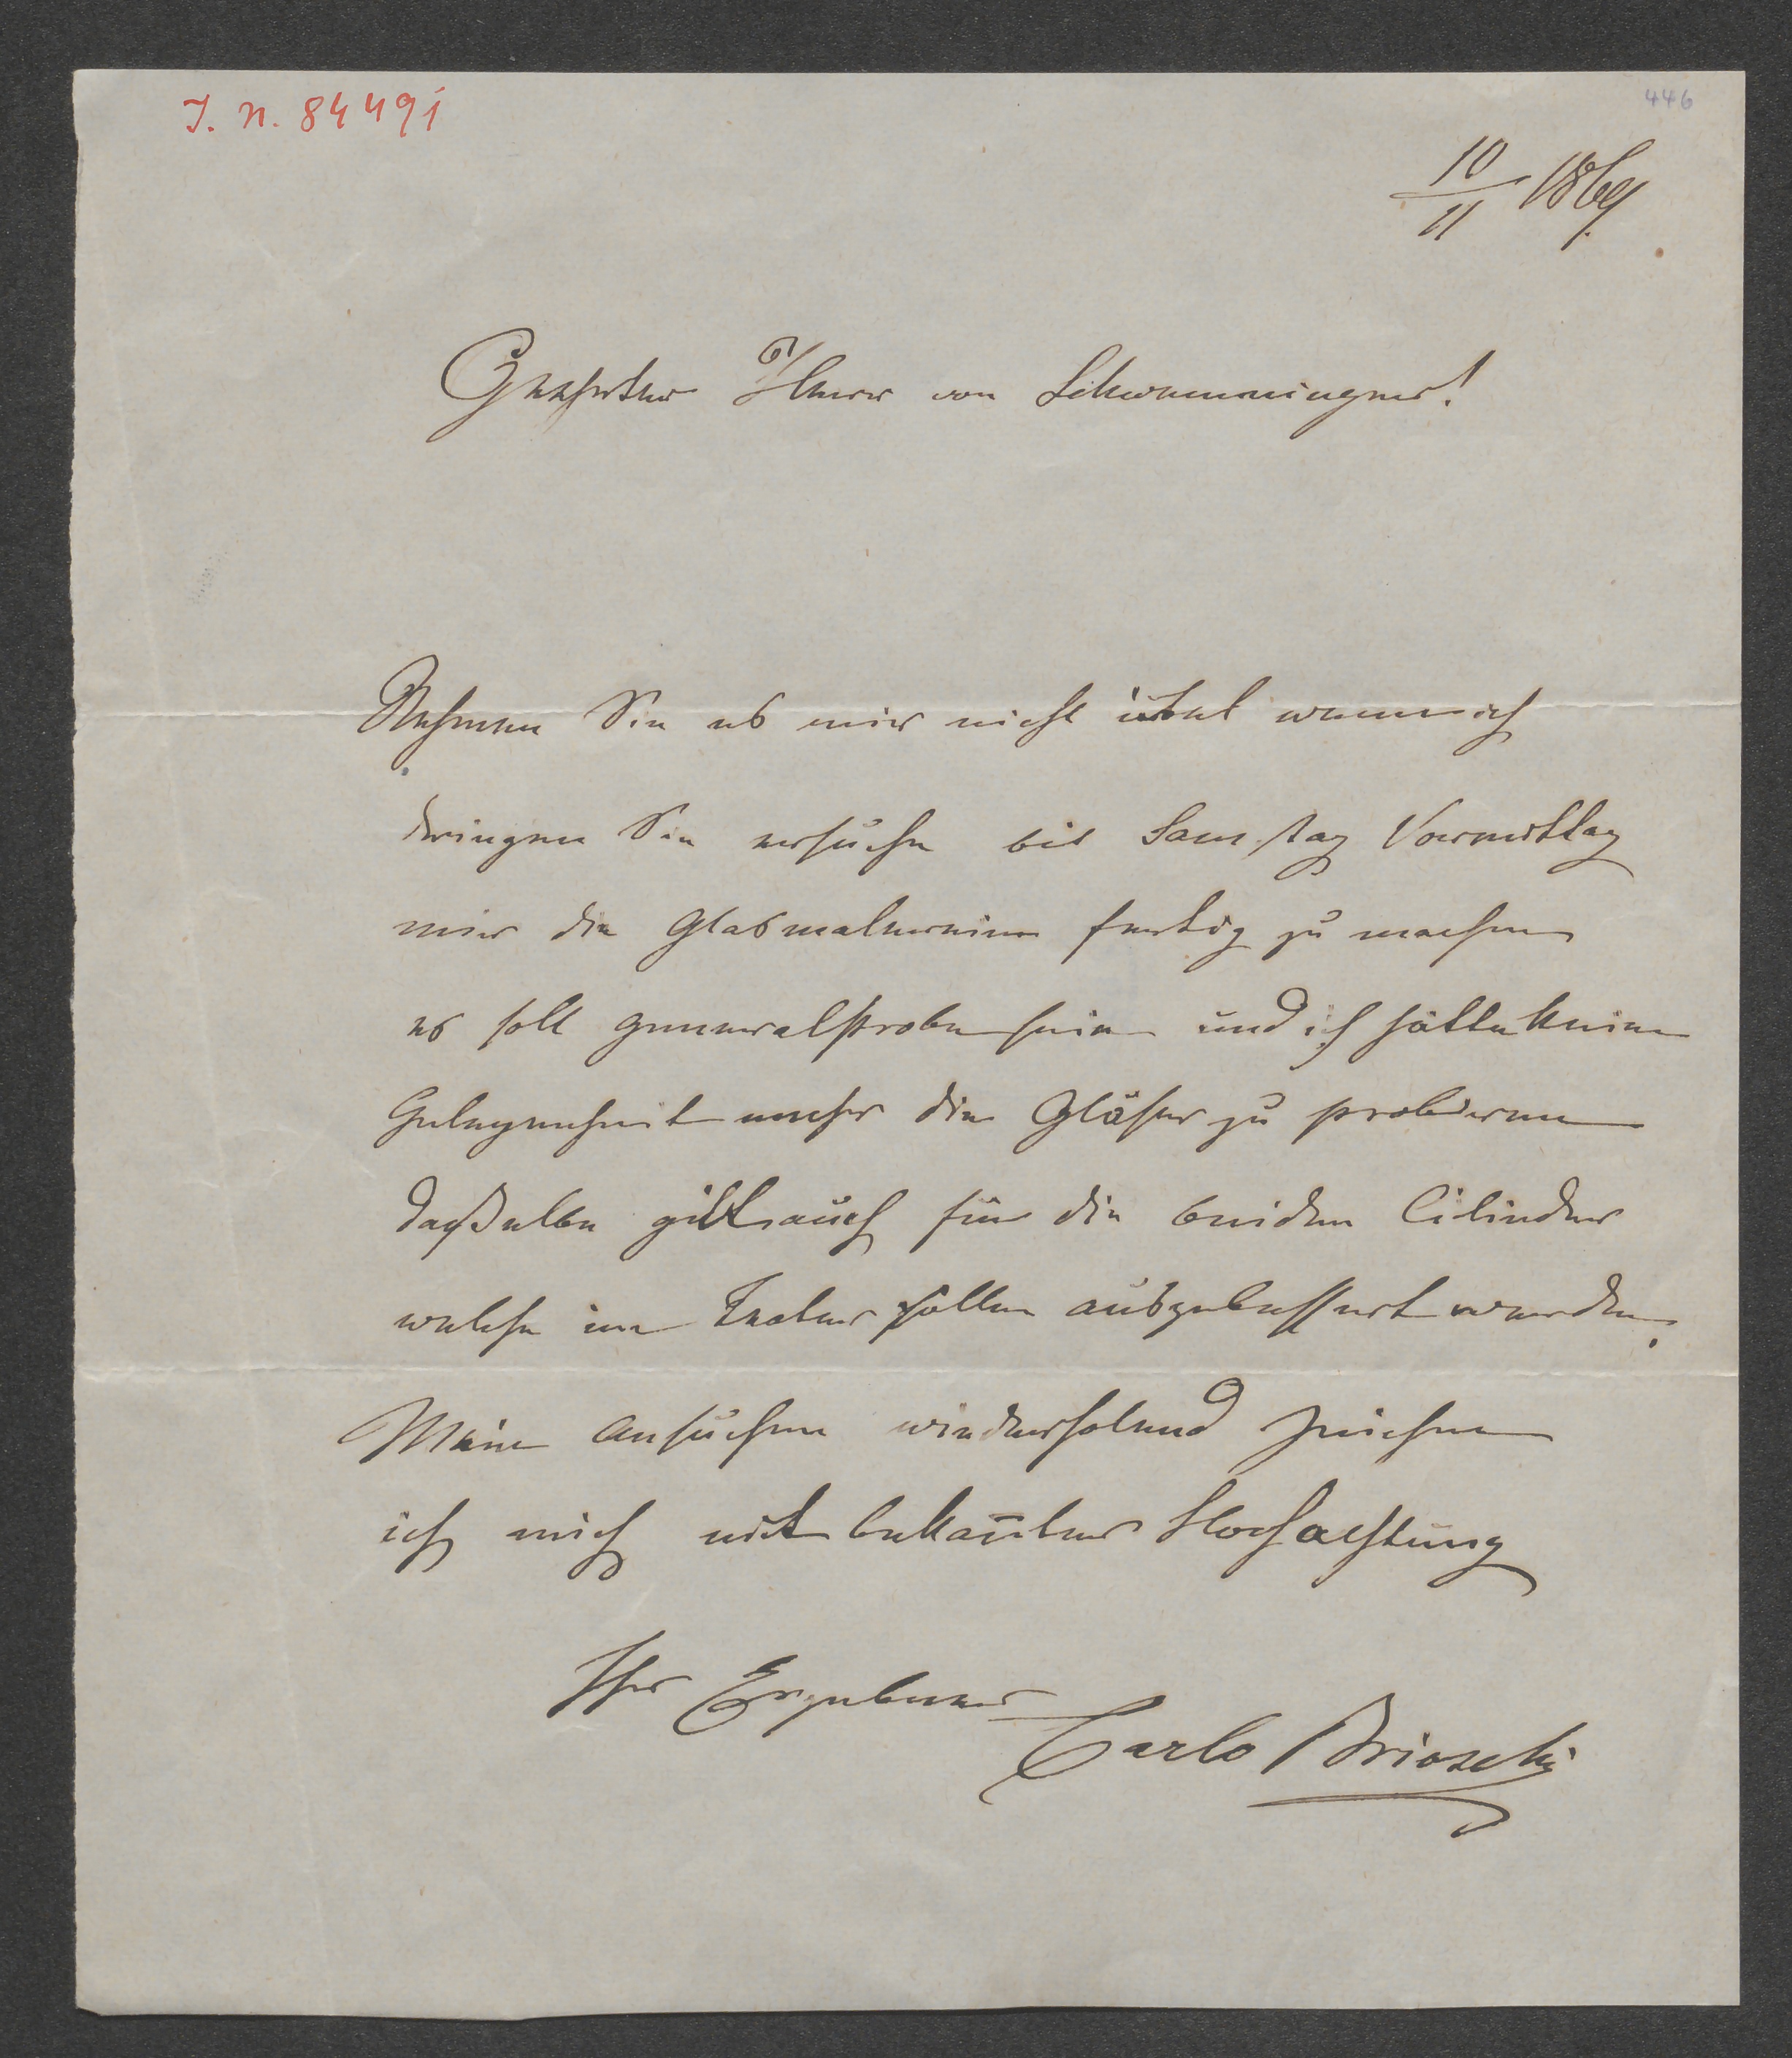 J. N. 84491
446
10/11 1869.
Geehrter Herr von Schwemminger!
Nehmen Sie es mir nicht übel wenn ich
dringen Sie ersuche bis Samstag Vormittag
mir die Glasmalereien fertig zu machen
es soll generalprobe sein und ich hätte keine
Gelegenheit mehr die Gläser zu probieren
daßelbe gilt auch für die beiden Cilinder
welche im sollen ausgebessert werden.
Mein Ansuchen wiederholend zeichne
ich mich mit bekan̄ter Hochachtung
Ihr Ergebener
Carlo Brioschi